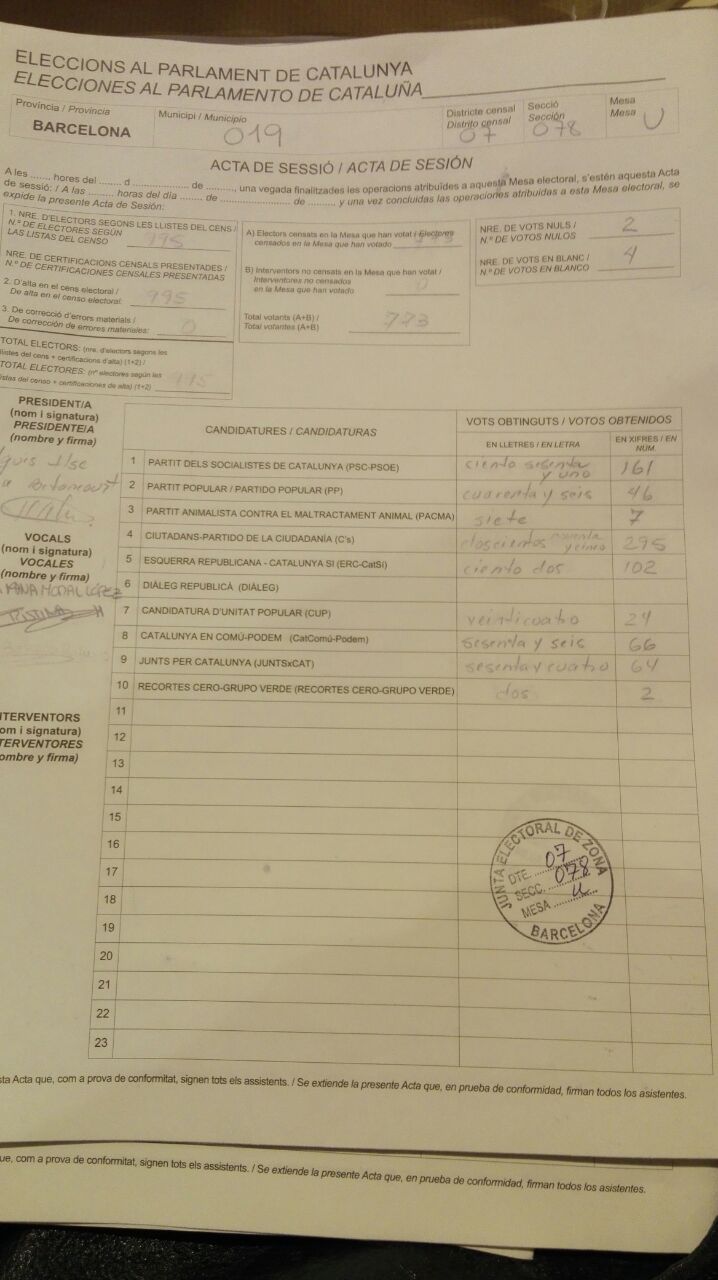 ELECCIONS AL PARLAMENT DE CATALUNYA
ELECCIONES AL PARLAMENTO DE CATALUÑA
Província / Provincia
BARCELONA
Municipi / Municipio
019
Districte censal
Distrito censal
07
Secció
Sección
078
Mesa
Mesa
U
ACTA DE SESSIÓ / ACTA DE SESIÓN
A les ........ hores del ........ d .................... de .........., una vegada finalitzades les operacions atribuïdes a aquesta Mesa electoral, s'estén aquesta Acta
de sessió: / A las ......... horas del día ........ de .................... de .......... y una vez concluidas las operaciones atribuidas a esta Mesa electoral, se
expide la presente Acta de Sesión:
1. NRE. D'ELECTORS SEGONS LES LLISTES DEL CENS /
N.º DE ELECTORES SEGÚN
LAS LISTAS DEL CENSO
995
NRE. DE CERTIFICACIONS CENSALS PRESENTADES /
N.º DE CERTIFICACIONES CENSALES PRESENTADAS
2. D'alta en el cens electoral /
De alta en el censo electoral:
995
3. De correcció d'errors materials /
De corrección de errores materiales:
0
TOTAL ELECTORS: (nre. d'electors segons les
llistes del cens + certificacions d'alta) (1+2) /
TOTAL ELECTORES: (nº electores según las
listas del censo + certificaciones de alta) (1+2)
995
A) Electors censats en la Mesa que han votat / Electores
censados en la Mesa que han votado
773
B) Interventors no censats en la Mesa que han votat /
Interventores no censados
en la Mesa que han votado
0
Total votants (A+B) /
Total votantes (A+B)
773
NRE. DE VOTS NULS /
N.º DE VOTOS NULOS
2
NRE. DE VOTS EN BLANC /
N.º DE VOTOS EN BLANCO
4
PRESIDENT/A
(nom i signatura)
PRESIDENTE/A
(nombre y firma)
VOCALS
(nom i signatura)
VOCALES
(nombre y firma)
INTERVENTORS
(nom i signatura)
INTERVENTORES
(nombre y firma)
CANDIDATURES / CANDIDATURAS
VOTS OBTINGUTS / VOTOS OBTENIDOS
EN LLETRES / EN LETRA
EN XIFRES / EN NÚM.
1 PARTIT DELS SOCIALISTES DE CATALUNYA (PSC-PSOE) ciento sesenta y uno 161
2 PARTIT POPULAR / PARTIDO POPULAR (PP) cuarenta y seis 46
3 PARTIT ANIMALISTA CONTRA EL MALTRACTAMENT ANIMAL (PACMA) siete 7
4 CIUTADANS-PARTIDO DE LA CIUDADANÍA (C's) doscientos noventa y cinco 295
5 ESQUERRA REPUBLICANA - CATALUNYA SI (ERC-CatSI) ciento dos 102
6 DIÀLEG REPUBLICÀ (DIÀLEG)
7 CANDIDATURA D'UNITAT POPULAR (CUP) veinticuatro 24
8 CATALUNYA EN COMÚ-PODEM (CatComú-Podem) sesenta y seis 66
9 JUNTS PER CATALUNYA (JUNTSxCAT) sesenta y cuatro 64
10 RECORTES CERO-GRUPO VERDE (RECORTES CERO-GRUPO VERDE) dos 2
11
12
13
14
15
16
17
18
19
20
21
22
23
JUNTA ELECTORAL DE ZONA
DTE. 07
SECC. 078
MESA U
BARCELONA
sta Acta que, com a prova de conformitat, signen tots els assistents. / Se extiende la presente Acta que, en prueba de conformidad, firman todos los asistentes.
ue, com a prova de conformitat, signen tots els assistents. / Se extiende la presente Acta que, en prueba de conformidad, firman todos los asistentes.